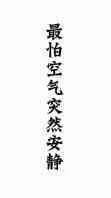 最怕空气突然安静